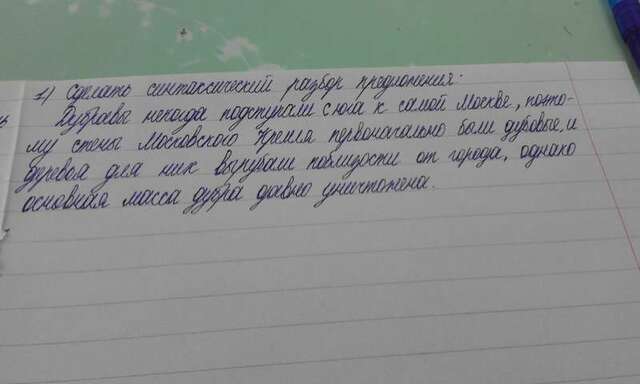 1) Сделать синтаксический разбор предложения:
Дубравы некогда подступали с юга к самой Москве, поэто-
му стены Московского Кремля первоначально были дубовые, и
деревья для них вырубали поблизости от города, однако
основная масса дубра давно уничтожена.